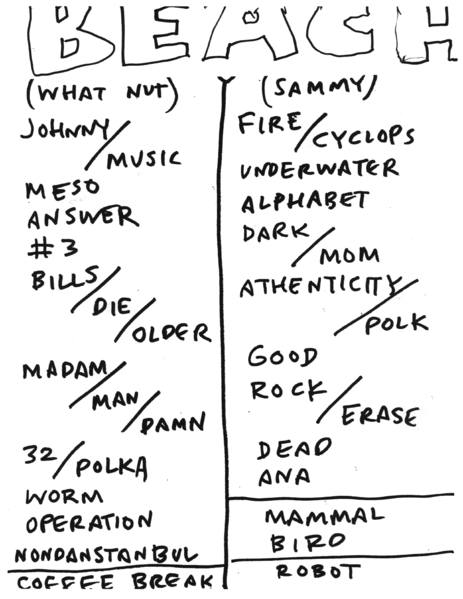 BEACH
(WHAT NUT)
JOHNNY/
MUSIC
MESO
ANSWER
#3
BILLS/
DIE/
OLDER
MADAM/
MAN/
DAMN
32/POLKA
WORM
OPERATION
NONDANSTANBUL
COFFEE BREAK
(SAMMY)
FIRE/CYCLOPS
UNDERWATER
ALPHABET
DARK/
MOM
ATHENTICITY/
POLK
GOOD
ROCK/
ERASE
DEAD
ANA
MAMMAL
BIRD
ROBOT